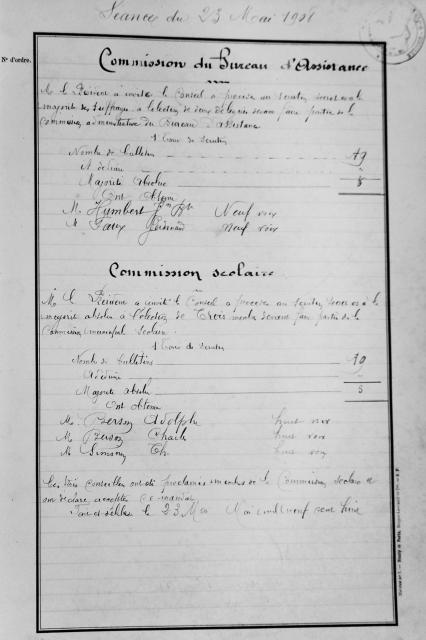 Séance du 23 Mai 1908
N° d'ordre.
Commission du Bureau d'Assistance
M. le Président a invité le Conseil à procéder au scrutin secret et à la
majorité des suffrages à l'élection de deux délégués devant faire partie de la
Commission administrative du Bureau d'assistance
1 Tour de scrutin
Nombre de bulletins
A déduire
Majorité absolue
Ont obtenu
M. Humbert Jn Bte Neuf voix
M. Faux Ferdinand neuf voix
Commission scolaire
M. le Président a invité le Conseil à procéder au scrutin secret et à la
majorité absolue à l'élection de Trois membres devant faire partie de la
Commission municipale scolaire.
1 Tour de scrutin
Nombre de bulletins
A déduire
Majorité absolue
Ont obtenu
M. Adolphe huit voix
M. huit voix
M. Simson Th. huit voix
Les trois conseillers ont été proclamés membres de la Commission scolaire et
ont déclaré accepter ce mandat.
Fait et délibéré le 23 Mai Mil neuf cent huit